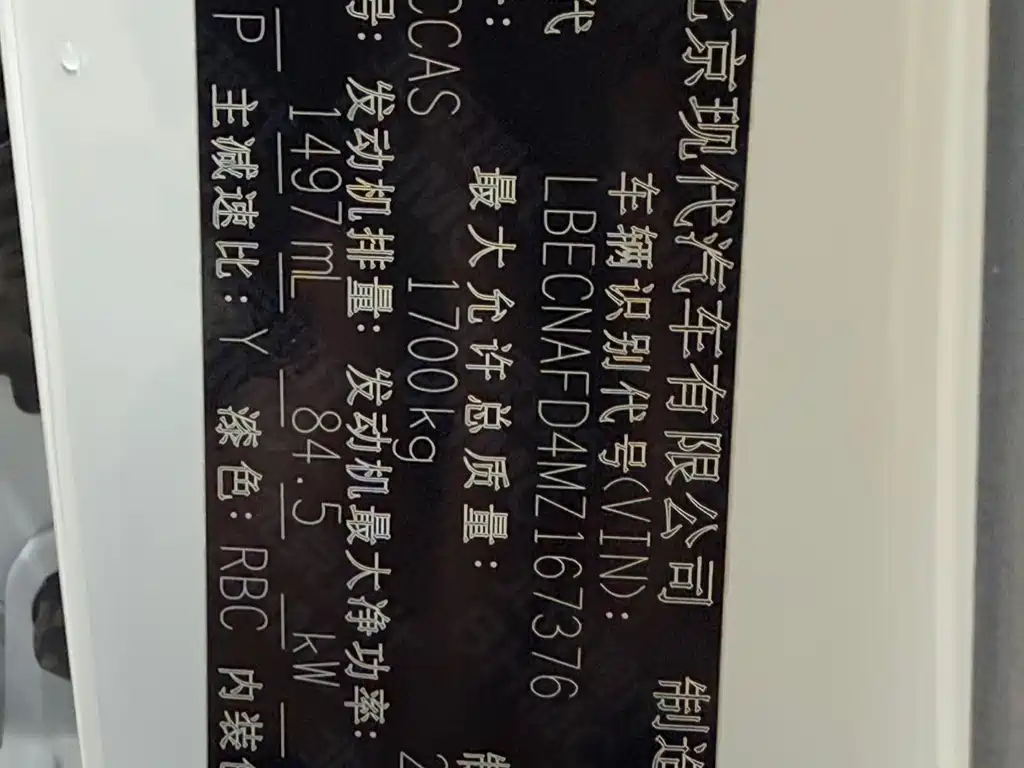 北京现代汽车有限公司 制造
车辆识别代号(VIN):
LBECNAFD4MZ167376
代
最大允许总质量: 制
CCAS 1700kg 2
号: 发动机排量: 发动机最大净功率:
1497mL 84.5 kW
P 主减速比: Y 漆色: RBC 内装